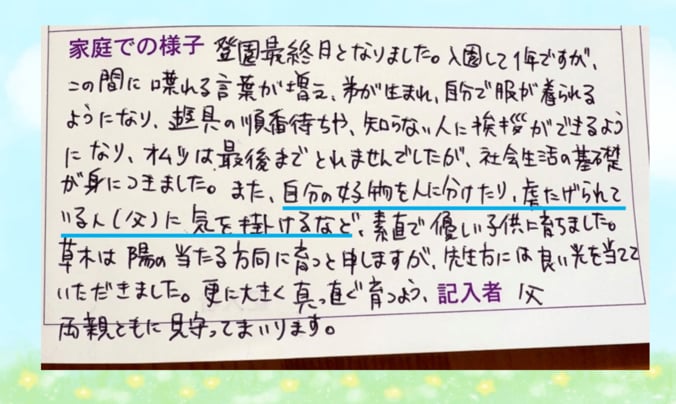 家庭での様子 登園最終日となりました。入園して1年ですが、
この間に喋れる言葉が増え、弟が生まれ、自分で服が着られる
ようになり、遊具の順番待ちや、知らない人に挨拶ができるよう
になり、オムツは最後までとれませんでしたが、社会生活の基礎
が身につきました。また、自分の好物を人に分けたり、虐たげられて
いる人(父)に気を掛けるなど、素直で優しい子供に育ちました。
草木は陽の当たる方向に育つと申しますが、先生方には良い光を当てて
いただきました。更に大きく真っ直ぐ育つよう、記入者 父
両親ともに見守ってまいります。